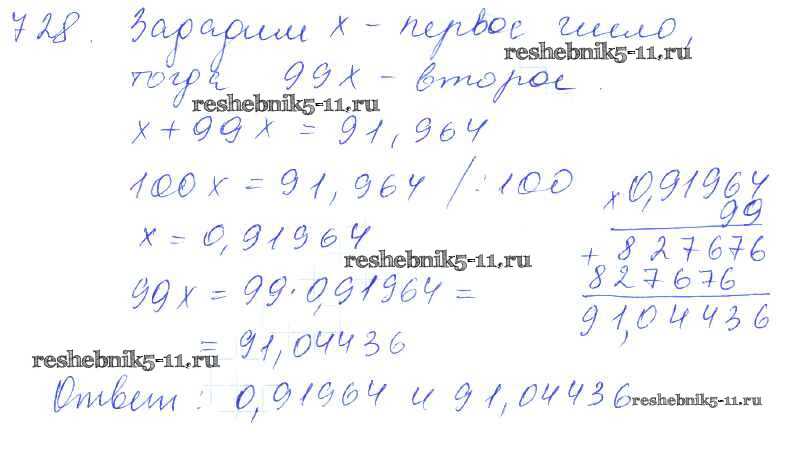 728. Зададим x - первое число,
reshebnik5-11.ru
тогда 99x - второе.
reshebnik5-11.ru
x + 99x = 91,964
100x = 91,964 /:100
x = 0,91964
reshebnik5-11.ru
99x = 99·0,91964 =
= 91,04436
reshebnik5-11.ru
× 0,91964
99
+ 827676
827676
91,04436
Ответ: 0,91964 и 91,04436
reshebnik5-11.ru